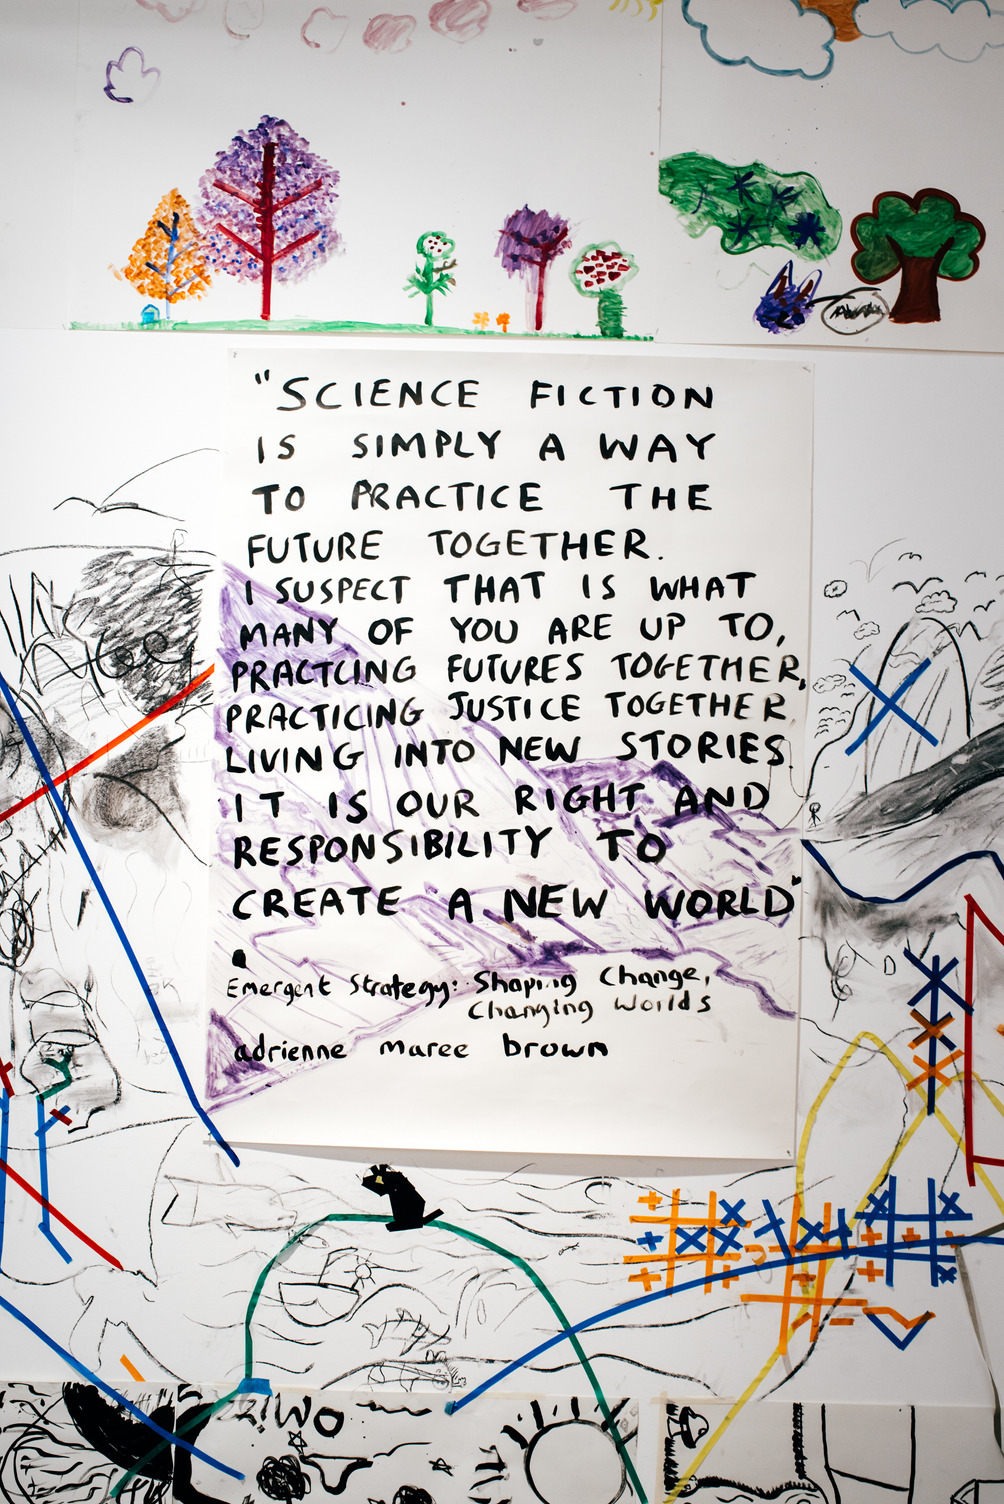 "SCIENCE FICTION
IS SIMPLY A WAY
TO PRACTICE THE
FUTURE TOGETHER.
I SUSPECT THAT IS WHAT
MANY OF YOU ARE UP TO,
PRACTCING FUTURES TOGETHER,
PRACTICING JUSTICE TOGETHER
LIVING INTO NEW STORIES.
IT IS OUR RIGHT AND
RESPONSIBILITY TO
CREATE A NEW WORLD"
Emergent Strategy: Shaping Change,
Changing Worlds
adrienne maree brown